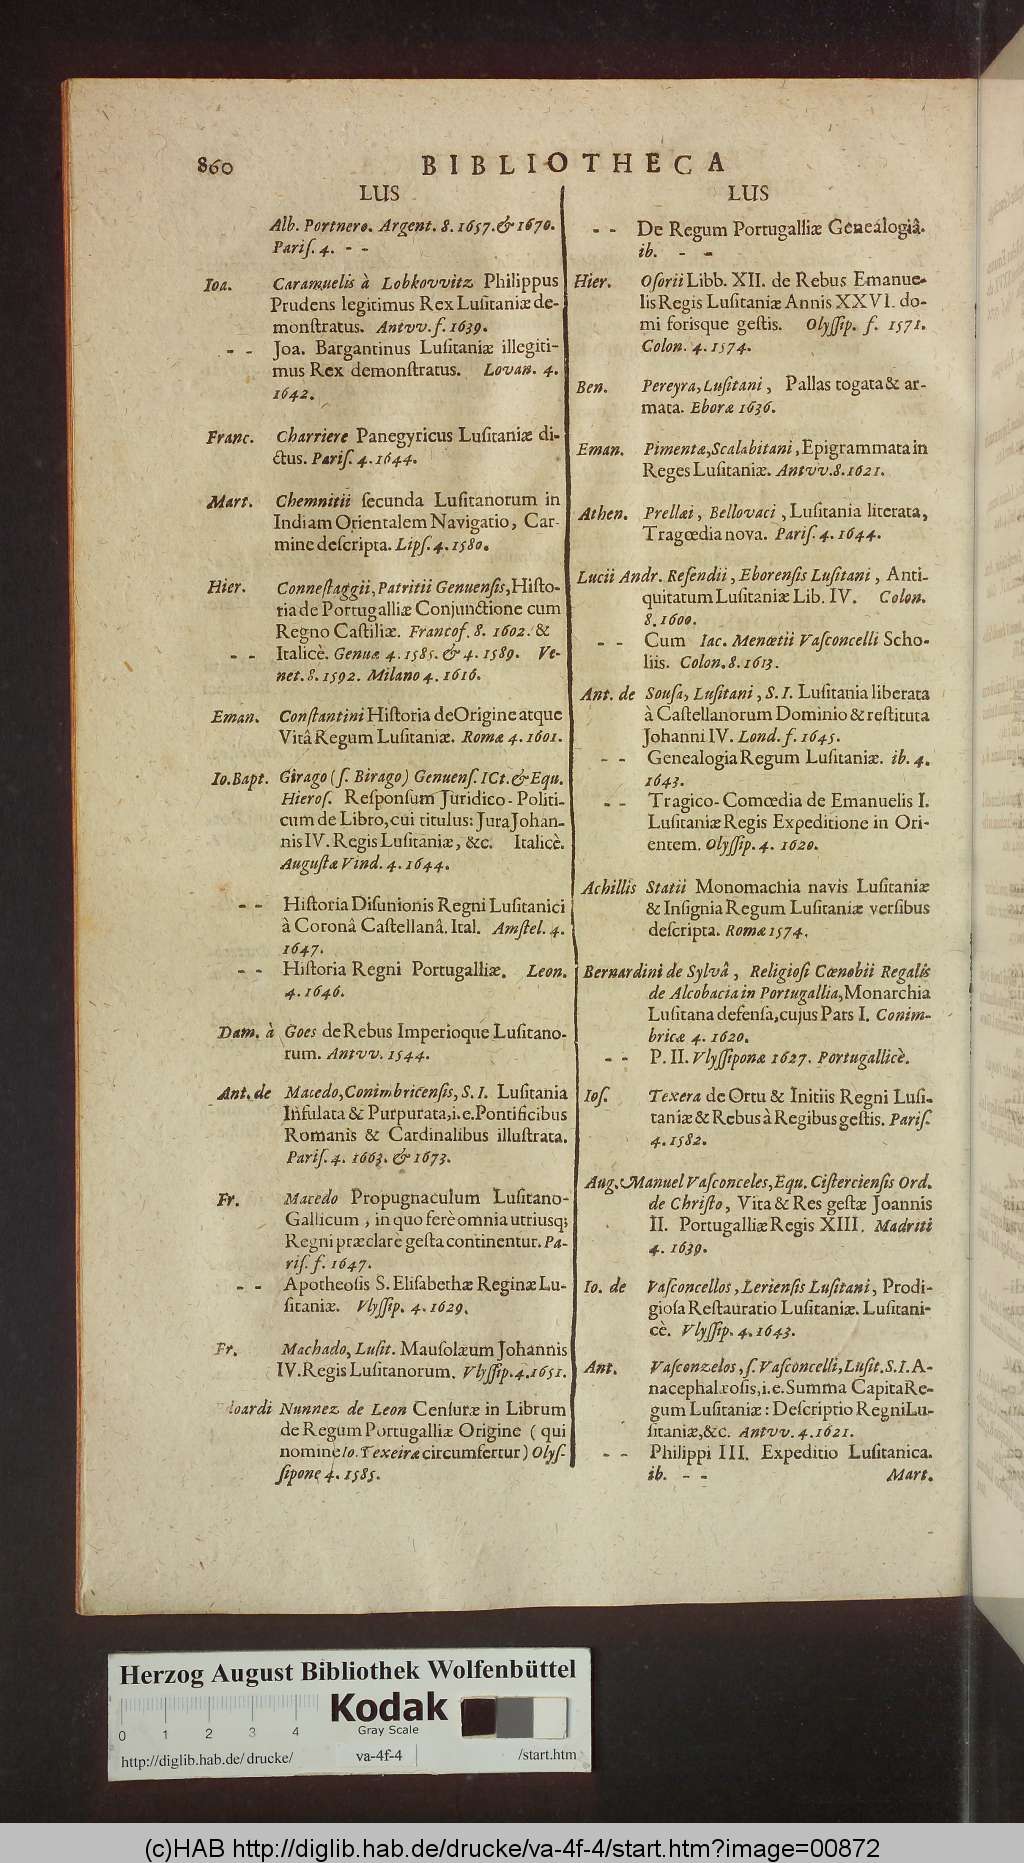 860 BIBLIOTHECA
LUS
Alb. Portnero. Argent. 8. 1657. & 1670.
Pariſ. 4. - -
Ioa. Caramuelis à Lobkovvitz Philippus
Prudens legitimus Rex Luſitaniæ de-
monſtratus. Antvv. f. 1639.
- - Joa. Bargantinus Luſitaniæ illegiti-
mus Rex demonſtratus. Lovan. 4.
1642.
Franc. Charriere Panegyricus Luſitaniæ di-
ctus. Pariſ. 4. 1644.
Mart. Chemnitii ſecunda Luſitanorum in
Indiam Orientalem Navigatio, Car-
mine deſcripta. Lipſ. 4. 1580.
Hier. Conneſtaggii, Patritii Genuenſis, Hiſto-
ria de Portugalliæ Conjunctione cum
Regno Caſtiliæ. Francof. 8. 1602. &
- - Italicè. Genuæ 4. 1585. & 4. 1589. Ve-
net. 8. 1592. Milano 4. 1616.
Eman. Conſtantini Hiſtoria de Origine atque
Vitâ Regum Luſitaniæ. Romæ 4. 1601.
Io. Bapt. Girago (ſ. Birago) Genuenſ. ICt. & Equ.
Hieroſ. Reſponſum Juridico-Politi-
cum de Libro, cui titulus: Jura Johan-
nis IV. Regis Luſitaniæ, &c. Italicè.
Auguſtæ Vind. 4. 1644.
- - Hiſtoria Diſunionis Regni Luſitanici
à Coronâ Caſtellanâ. Ital. Amſtel. 4.
1647.
- - Hiſtoria Regni Portugalliæ. Leon.
4. 1646.
Dam. à Goes de Rebus Imperioque Luſitano-
rum. Antvv. 1544.
Ant. de Macedo, Conimbricenſis, S. I. Luſitania
Infulata & Purpurata, i. e. Pontificibus
Romanis & Cardinalibus illuſtrata.
Pariſ. 4. 1663. & 1673.
Fr. Macedo Propugnaculum Luſitano-
Gallicum, in quo ferè omnia utriusq;
Regni præclarè geſta continentur. Pa-
riſ. f. 1647.
- - Apotheoſis S. Eliſabethæ Reginæ Lu-
ſitaniæ. Vlyſſip. 4. 1629.
Fr. Machado, Luſit. Mauſolæum Johannis
IV. Regis Luſitanorum. Vlyſſip. 4. 1651.
Edoardi Nunnez de Leon Cenſuræ in Librum
de Regum Portugalliæ Origine (qui
nomine Io. Texeiræ circumfertur) Olyſ-
ſipone 4. 1585.
LUS
- - De Regum Portugalliæ Genealogiâ.
ib. - -
Hier. Oſorii Libb. XII. de Rebus Emanue-
lis Regis Luſitaniæ Annis XXVI. do-
mi forisque geſtis. Olyſſip. f. 1571.
Colon. 4. 1574.
Ben. Pereyra, Luſitani, Pallas togata & ar-
mata. Eboræ 1636.
Eman. Pimentæ, Scalabitani, Epigrammata in
Reges Luſitaniæ. Antvv. 8. 1621.
Athen. Prellæi, Bellovaci, Luſitania literata,
Tragœdia nova. Pariſ. 4. 1644.
Lucii Andr. Reſendii, Eborenſis Luſitani, Anti-
quitatum Luſitaniæ Lib. IV. Colon.
8. 1600.
- - Cum Iac. Menœtii Vaſconcelli Scho-
liis. Colon. 8. 1613.
Ant. de Souſa, Luſitani, S. I. Luſitania liberata
à Caſtellanorum Dominio & reſtituta
Johanni IV. Lond. f. 1645.
- - Genealogia Regum Luſitaniæ. ib. 4.
1643.
- - Tragico-Comœdia de Emanuelis I.
Luſitaniæ Regis Expeditione in Ori-
entem. Olyſſip. 4. 1620.
Achillis Statii Monomachia navis Luſitaniæ
& Inſignia Regum Luſitaniæ verſibus
deſcripta. Romæ 1574.
Bernardini de Sylvâ, Religioſi Cœnobii Regalis
de Alcobacia in Portugallia, Monarchia
Luſitana defenſa, cujus Pars I. Conim-
bricæ 4. 1620.
- - P. II. Vlyſſiponæ 1627. Portugallicè.
Ioſ. Texera de Ortu & Initiis Regni Luſi-
taniæ & Rebus à Regibus geſtis. Pariſ.
4. 1582.
Aug. Manuel Vaſconceles, Equ. Ciſtercienſis Ord.
de Chriſto, Vita & Res geſtæ Joannis
II. Portugalliæ Regis XIII. Madriti
4. 1639.
Io. de Vaſconcellos, Lerienſis Luſitani, Prodi-
gioſa Reſtauratio Luſitaniæ. Luſitani-
cè. Vlyſſip. 4. 1643.
Ant. Vaſconzelos, ſ. Vaſconcelli, Luſit. S. I. A-
nacephalæoſis, i. e. Summa Capita Re-
gum Luſitaniæ: Deſcriptio Regni Lu-
ſitaniæ, &c. Antvv. 4. 1621.
- - Philippi III. Expeditio Luſitanica.
ib. - -
Mart.
Herzog August Bibliothek Wolfenbüttel
Kodak
Gray Scale
0 1 2 3 4
http://diglib.hab.de/drucke/ va-4f-4 /start.htm
(c)HAB http://diglib.hab.de/drucke/va-4f-4/start.htm?image=00872